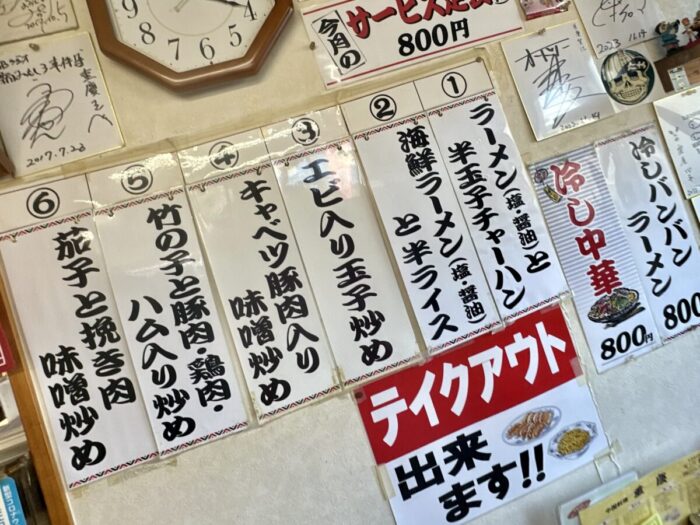 今月の
サービス定食
800円
①
ラーメン(塩・醤油)と
半玉子チャーハン
②
海鮮ラーメン(塩・醤油)
と半ライス
③
エビ入り玉子炒め
④
キャベツ豚肉入り
味噌炒め
⑤
竹の子と豚肉・鶏肉・
ハム入り炒め
⑥
茄子と挽き肉
味噌炒め
冷し中華
800円
冷しバンバン
ラーメン
800
テイクアウト
出来
ます!!
2017.7.22
2023
中国料理